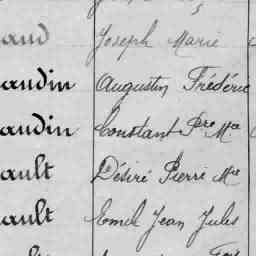 aud Joseph Marie
audin Augustin Frédéric
audin Constant Pre Mie
ault Désiré Pierre Mie
ault Emile Jean Jules